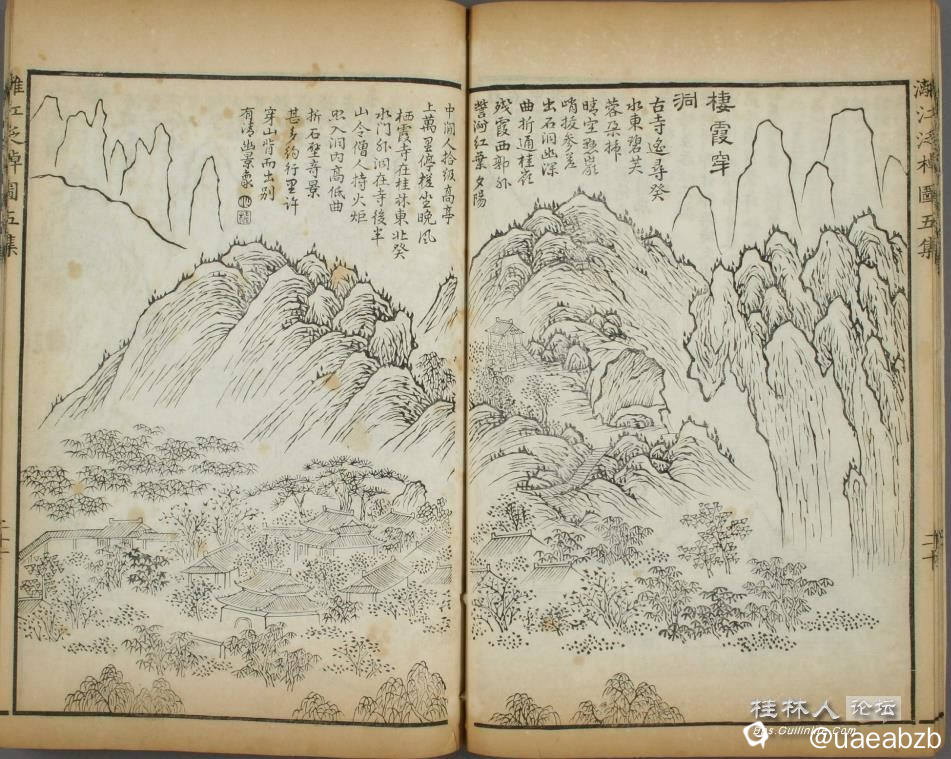 灕江泛棹圖五集
二十
棲霞穿
洞
古寺遥尋癸
水東碧芙
蓉朶插
晴空懸巖
峭拔參差
出石洞幽深
曲折通桂嶺
殘霞西郭外
訾洲紅葉夕陽
中間人拾級高亭
上萬里停槎坐晚風
栖霞寺在桂林東北癸
水門外洞在寺後半
山令僧人持火炬
照入洞內高低曲
折石壁奇景
甚多約行里許
穿山背而出別
有清幽景象
灕江泛棹圖五集
二十一
桂林人论坛
bbs.Guilinlife.Com
@uaeabzb